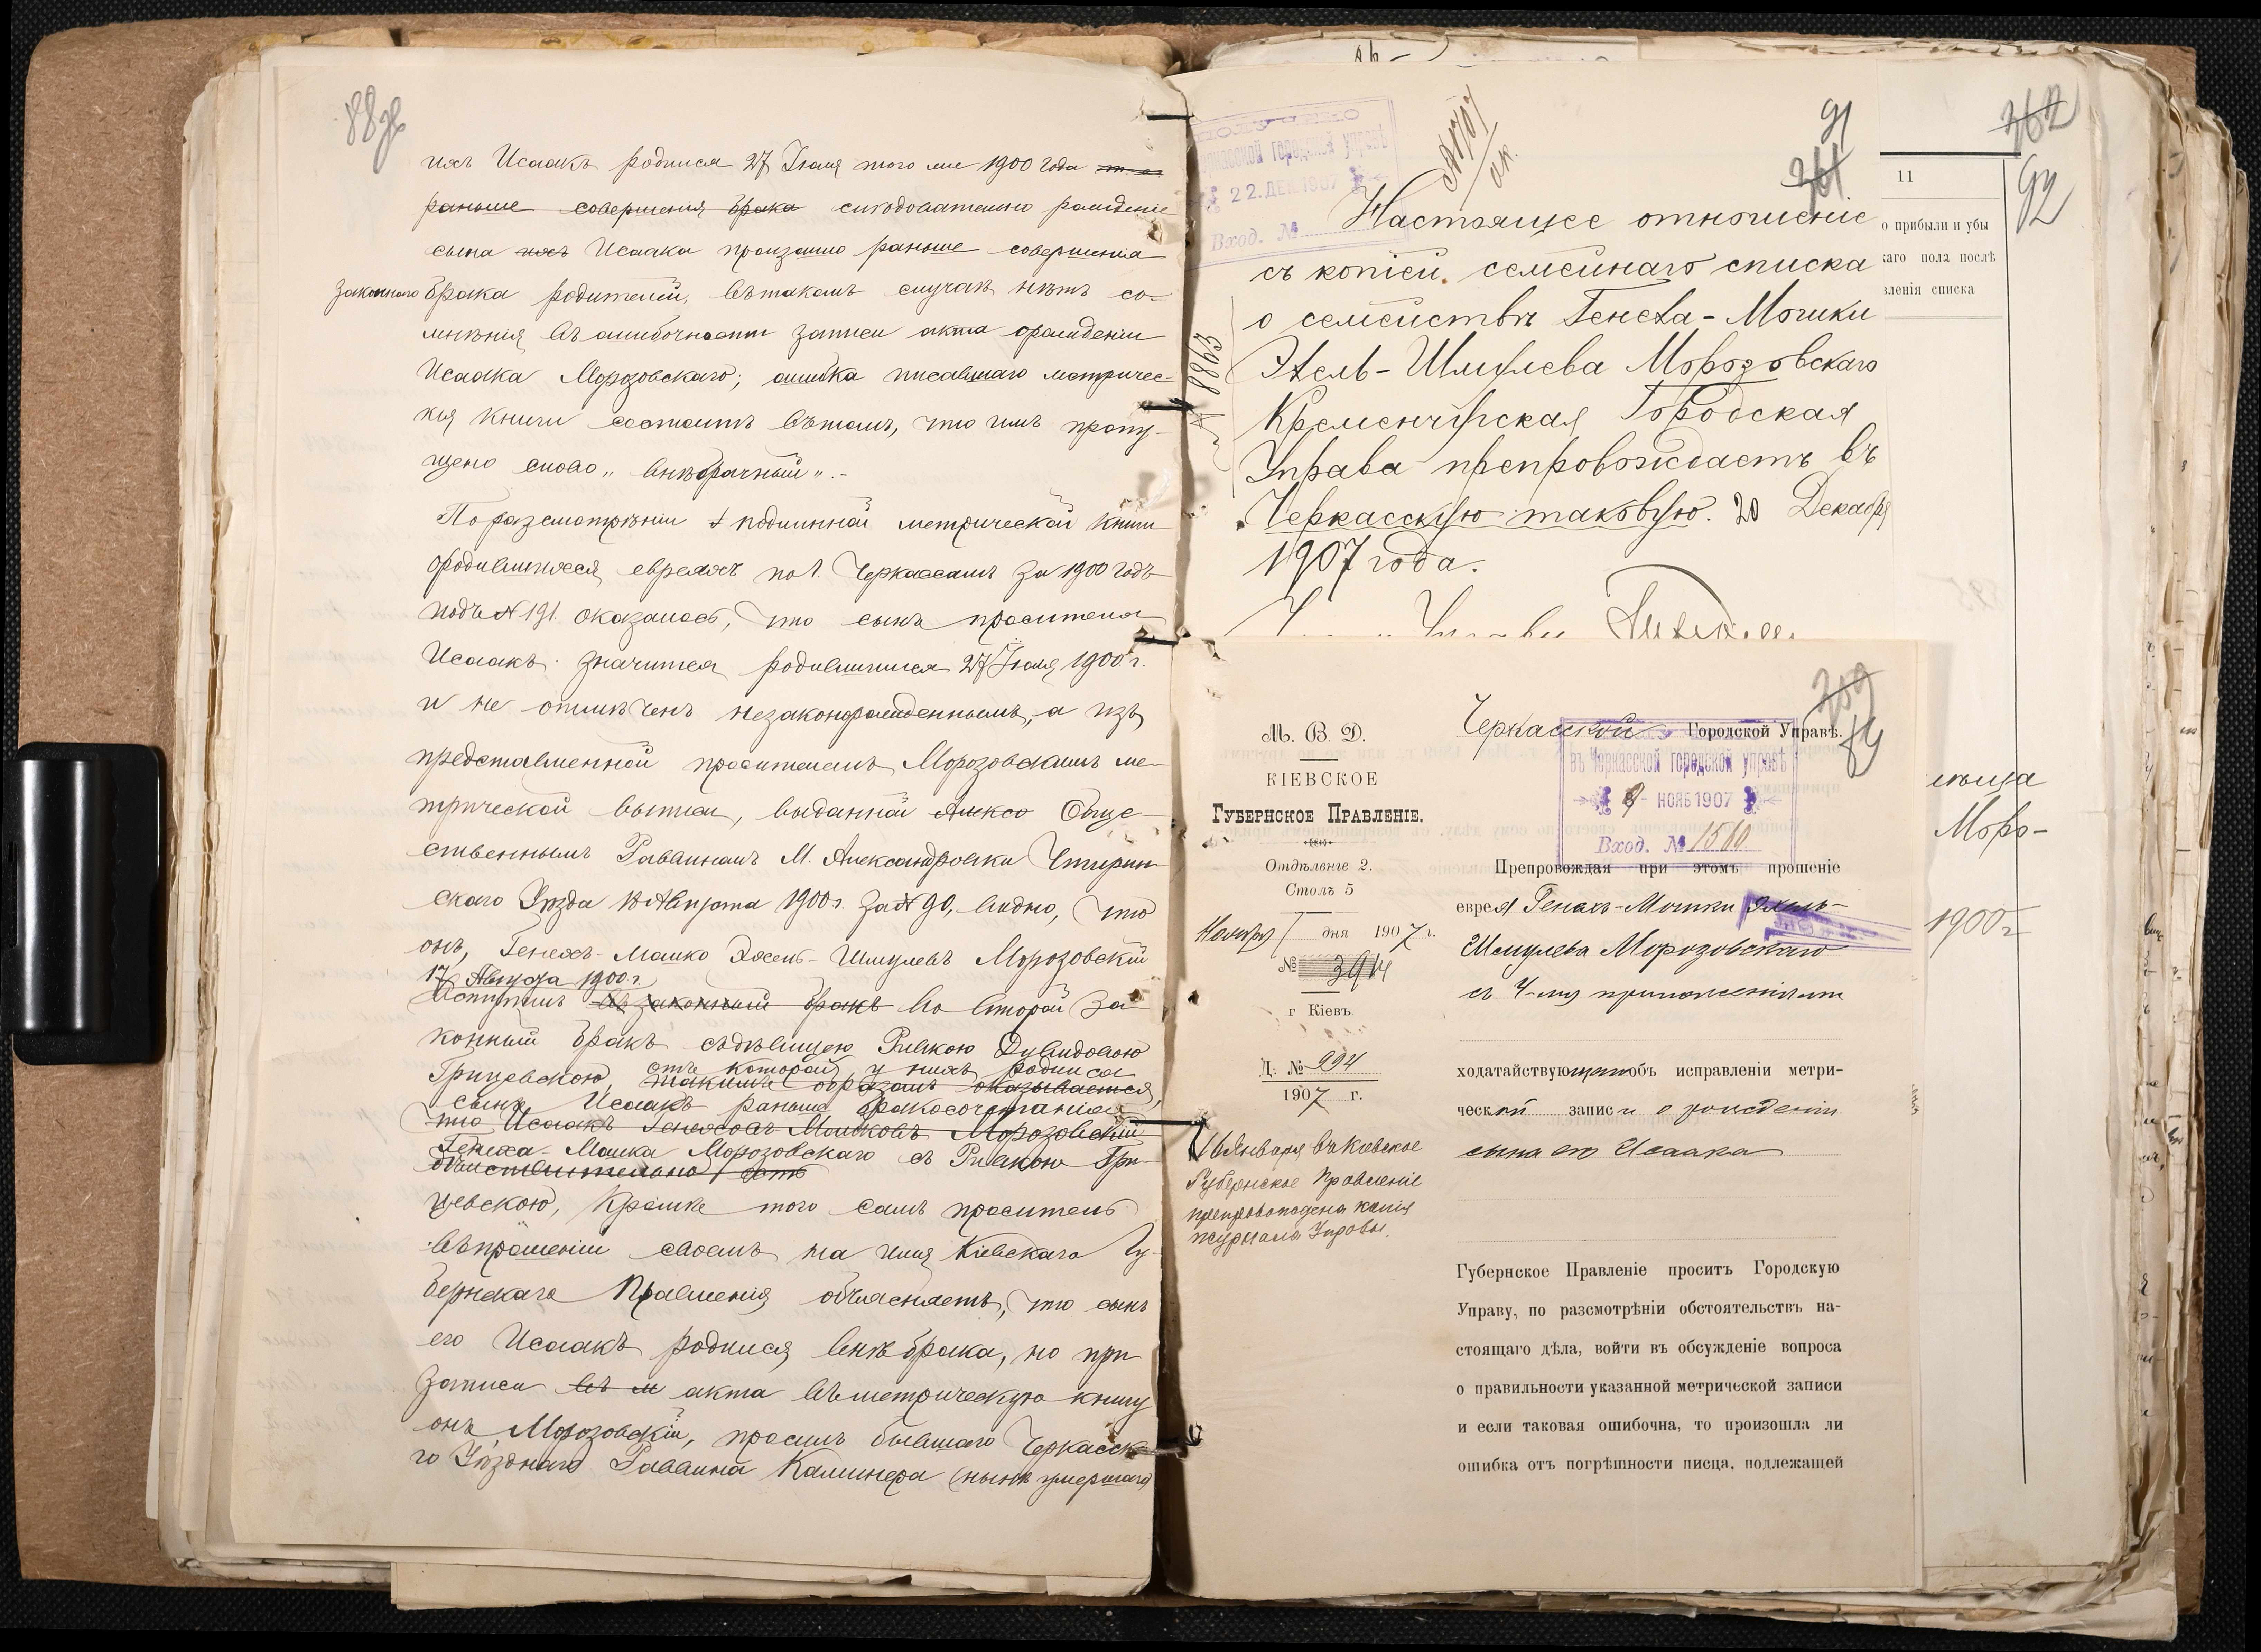 88 об
ихъ Исаакъ родился 27 Іюля того же 1900 года
раньше совершенія брака слѣдовательно рожденіе
сына ихъ Исаака произошло раньше совершенія
законнаго брака родителей, въ такомъ случаѣ нѣтъ со-
мнѣнія въ ошибочности записи акта о рожденіи
Исаака Морозовскаго; ошибка писавшаго метричес-
кія книги состоитъ въ томъ, что имъ пропу-
щено слово „внѣбрачный".-
По разсмотрѣніи подлинной метрической книги
о родившихся евреяхъ по г. Черкассамъ за 1900 годъ
подъ № 191 оказалось, что сынъ просителя
Исаакъ значится родившимся 27 Іюля 1900 г.
и не отмѣченъ незаконорожденнымъ, а изъ
представленной просителемъ Морозовскимъ ме-
трической выписи, выданной Алексо Обще-
ственнымъ Раввиномъ М. Александровки Чигирин-
скаго Уѣзда 18 Августа 1900 г. за № 90, видно, что
онъ, Генехъ-Мошко Эхель-Шмулевъ Морозовскій
17 Августа 1900 г.
вступилъ въ законный бракъ во второй за-
конный бракъ съ дѣвицею Ривкою Дувидовою
Грицевскою, отъ которой у нихъ родился
такимъ образомъ оказывается,
сынъ Исаакъ раньше бракосочетанія
что Исаакъ Генеховъ-Мошковъ Морозовскій
Генеха-Мошка Морозовскаго съ Ривкою Гри-
дѣйствительно
цевскою, Кромѣ того самъ проситель
въ прошеніи своемъ на имя Кіевскаго Гу-
бернскаго Правленія объясняетъ, что сынъ
его Исаакъ родился внѣ брака, но при
записи въ м акта въ метрическую книгу
онъ, Морозовскій, просилъ бывшаго Черкасска-
го Уѣзднаго Раввина Каминера (нынѣ умершаго)
ПОЛУЧЕНО
Черкасской городской управѣ
22. ДЕК 1907
Вход. №
91
361
Настоящее отношеніе
съ копіей семейнаго списка
о семействѣ Генеха-Мошки
Эхель-Шмулева Морозовскаго
Кременчугская Городская
Управа препровождаетъ въ
Черкасскую таковую. 20 Декабря
1907 года.
№ 8865
362
92
11
о прибыли и убы
каго пола послѣ
вленія списка
Моро-
1900 г
209
84
М. В. Д.
КІЕВСКОЕ
ГУБЕРНСКОЕ ПРАВЛЕНІЕ.
Отдѣленіе 2.
Столъ 5
Ноября 7 дня 1907 г.
№ 3914
г Кіевъ
Д. № 994
1907 г.
Января въ Кіевское
Губернское Правленіе
препровождена копія
журнала Управы.
Черкасской Городской Управѣ.
въ Черкасской городской управѣ
9 - НОЯБ 1907
Вход. № 1560
Препровождая при этомъ прошеніе
еврея Генахъ-Мошки Эхель-
Шмулева Морозовскаго
съ 4-мя приложеніями
ходатайствующаго объ исправленіи метри-
ческой записи о рожденіи
сына его Исаака
Губернское Правленіе проситъ Городскую
Управу, по разсмотрѣніи обстоятельствъ на-
стоящаго дѣла, войти въ обсужденіе вопроса
о правильности указанной метрической записи
и если таковая ошибочна, то произошла ли
ошибка отъ погрѣшности писца, подлежащей